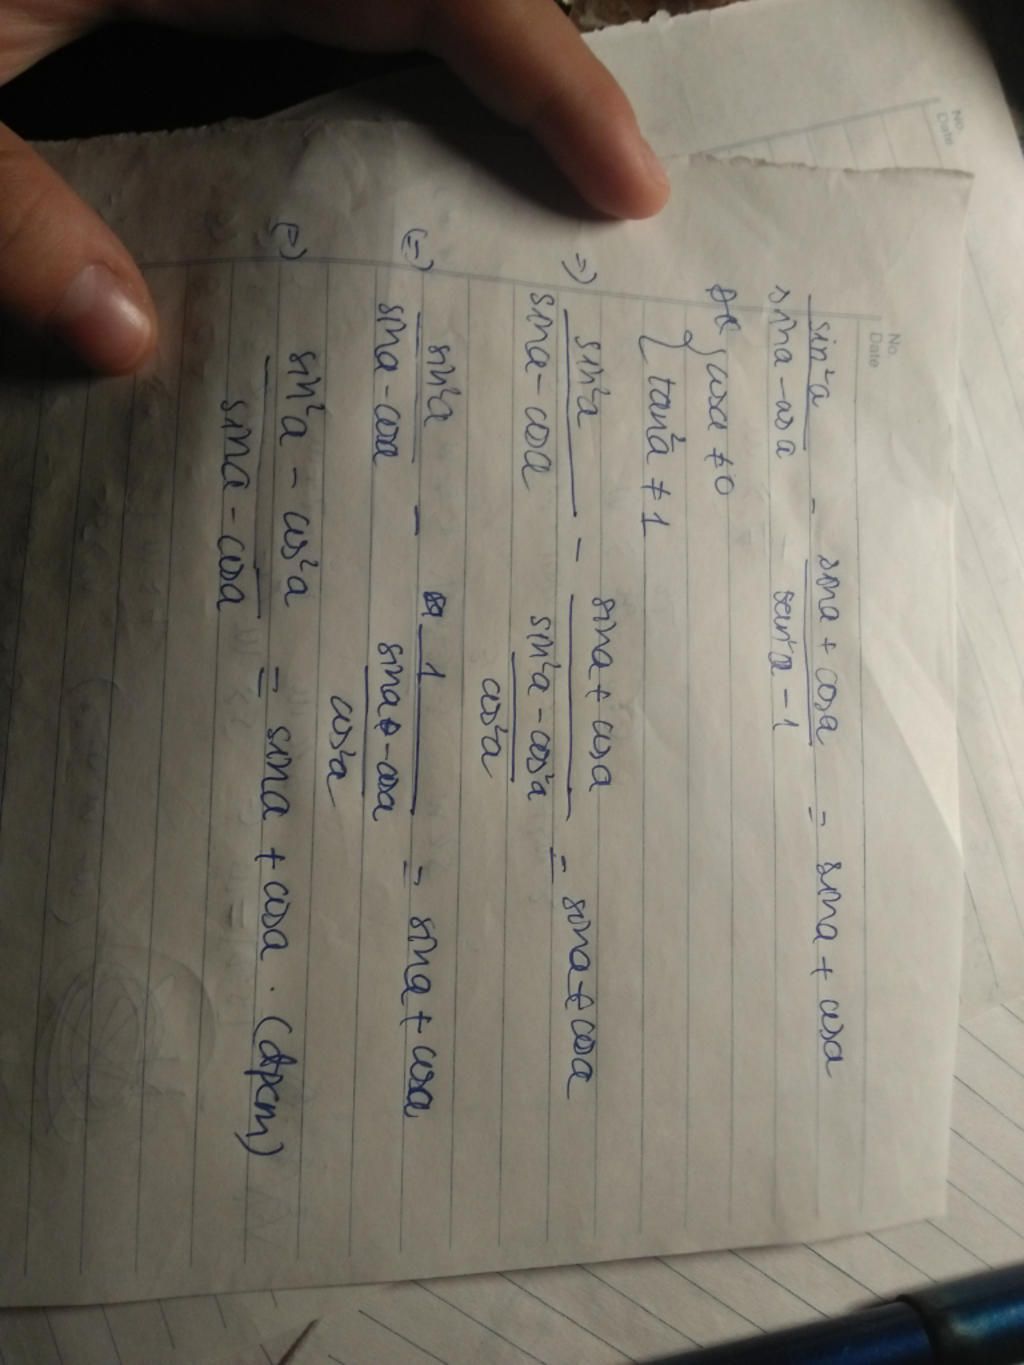 No.
Date
No.
Date
sin²a / (sina - cosa) - (sina + cosa) / (tan²a - 1) = sina + cosa
ĐK { cosa ≠ 0
tan²a ≠ 1
=) sin²a / (sina - cosa) - (sina + cosa) / ((sin²a - cos²a) / cos²a) = sina + cosa
(=) sin²a / (sina - cosa) - 1 / ((sina - cosa) / cos²a) = sina + cosa
(=) (sin²a - cos²a) / (sina - cosa) = sina + cosa . (đpcm)